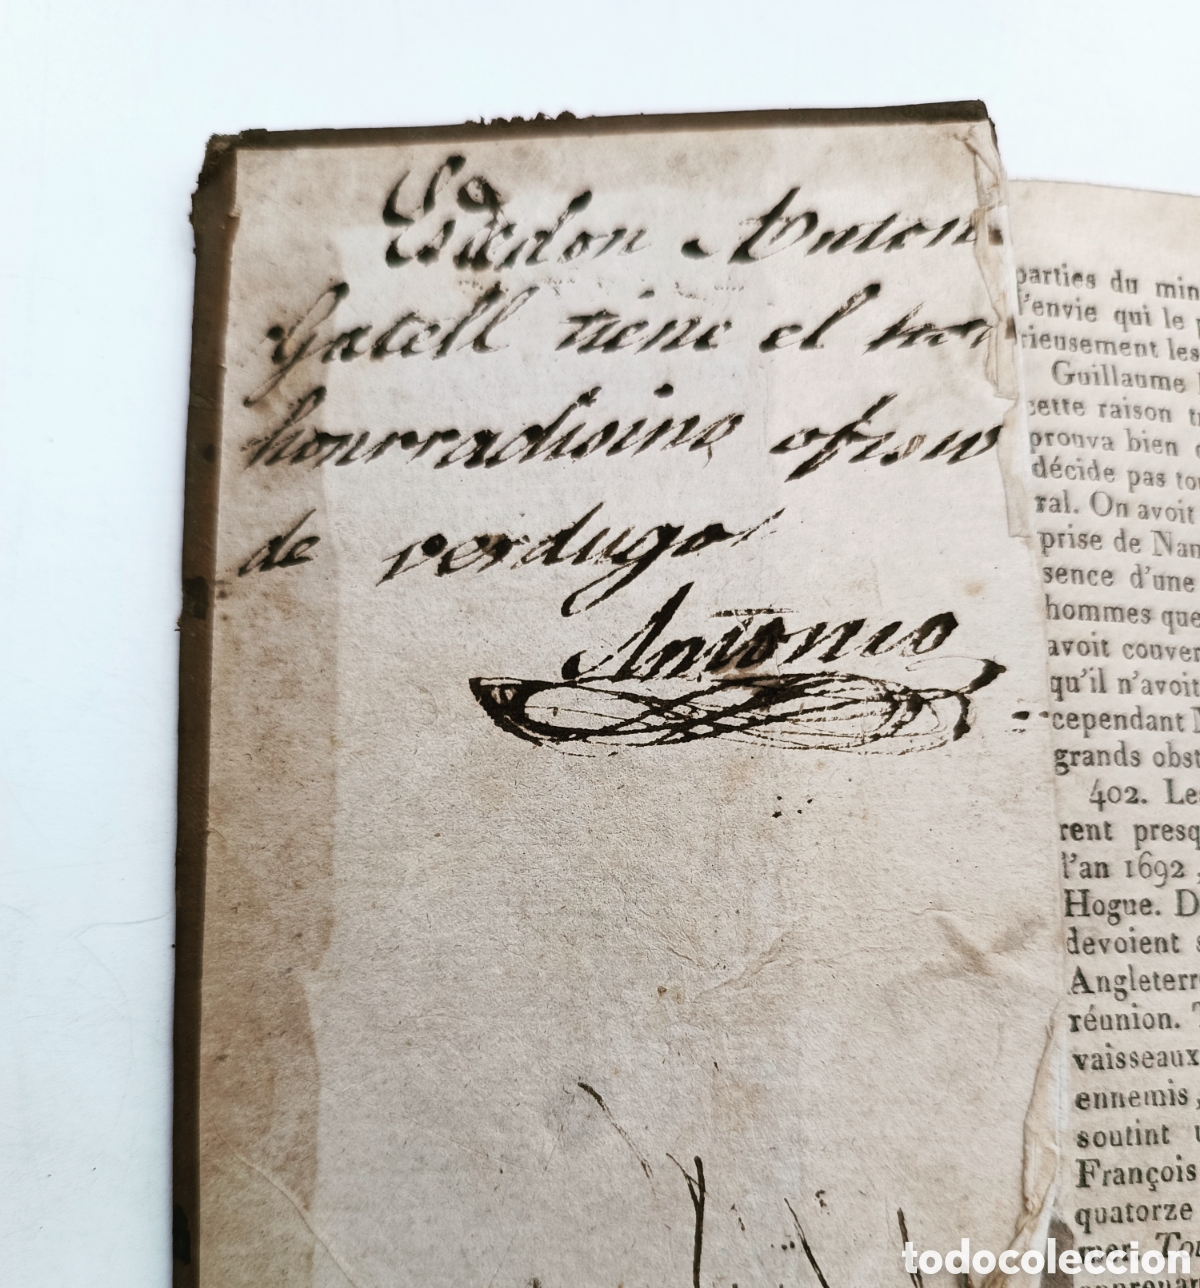 Es de don Anton
Gatell tiene el
honrradisimo
de verdugo
Antonio
parties du min
l'envie qui le
rieusement les
Guillaume
cette raison
prouva bien
décide pas tou
ral. On avoit
prise de Nam
sence d'une
hommes que
avoit couver
qu'il n'avoit
cependant
grands obst
402. Le
rent presq
l'an 1692,
Hogue. D
devoient
Angleterre
réunion.
vaisseaux
ennemis,
soutint
François
quatorze
mer. Tou
todocoleccion